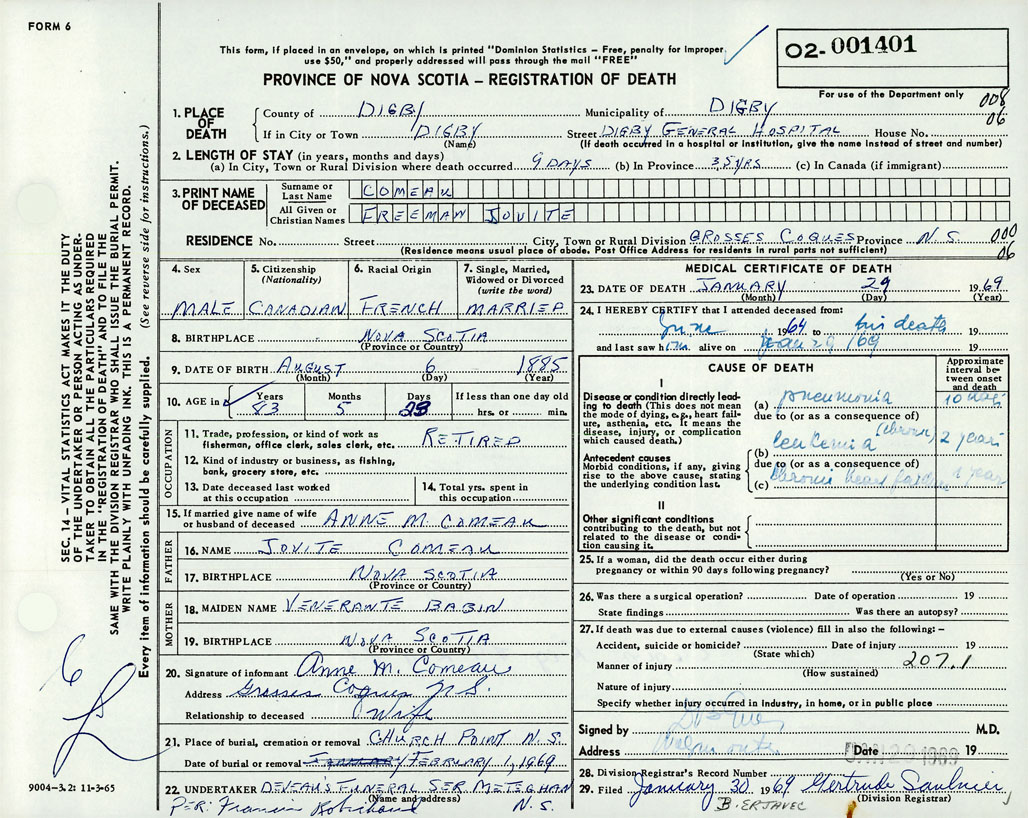 FORM 6
This form, if placed in an envelope, on which is printed "Dominion Statistics – Free, penalty for improper
use $50," and properly addressed will pass through the mail "FREE"
02-001401
PROVINCE OF NOVA SCOTIA – REGISTRATION OF DEATH
For use of the Department only
008
06
1. PLACE OF DEATH
County of DIGBY Municipality of DIGBY
If in City or Town DIGBY Street DIGBY GENERAL HOSPITAL House No.
(Name) (If death occurred in a hospital or institution, give the name instead of street and number)
2. LENGTH OF STAY (in years, months and days)
(a) In City, Town or Rural Division where death occurred. 9 DAYS (b) In Province 38 YRS (c) In Canada (if immigrant)
3. PRINT NAME OF DECEASED
Surname or Last Name COMEAU
All Given or Christian Names FREEMAN JOVITE
RESIDENCE No. Street City, Town or Rural Division GROSSES COQUES Province N.S. 000
(Residence means usual place of abode. Post Office Address for residents in rural parts not sufficient) 06
4. Sex
MALE
5. Citizenship (Nationality)
CANADIAN
6. Racial Origin
FRENCH
7. Single, Married, Widowed or Divorced (write the word)
MARRIED
8. BIRTHPLACE NOVA SCOTIA
(Province or Country)
9. DATE OF BIRTH AUGUST 6 1885
(Month) (Day) (Year)
10. AGE in Years Months Days If less than one day old
83 5 23 hrs. or min.
OCCUPATION
11. Trade, profession, or kind of work as RETIRED
fisherman, office clerk, sales clerk, etc.
12. Kind of industry or business, as fishing,
bank, grocery store, etc.
13. Date deceased last worked
at this occupation
14. Total yrs. spent in
this occupation
15. If married give name of wife
or husband of deceased ANNE M. COMEAU
FATHER
16. NAME JOVITE COMEAU
17. BIRTHPLACE NOVA SCOTIA
(Province or Country)
MOTHER
18. MAIDEN NAME VENERANTE BABIN
19. BIRTHPLACE NOVA SCOTIA
(Province or Country)
20. Signature of informant Anne M. Comeau
Address Grosses Coques N.S.
Relationship to deceased Wife
21. Place of burial, cremation or removal CHURCH POINT N.S.
Date of burial or removal JANUARY/FEBRUARY 1, 1969
22. UNDERTAKER DEVEAU'S FUNERAL SER METEGHAN
(Name and address) N.S.
PER. Francis Robichaud
MEDICAL CERTIFICATE OF DEATH
23. DATE OF DEATH JANUARY 29 1969
(Month) (Day) (Year)
24. I HEREBY CERTIFY that I attended deceased from:
June 1964 to his death 19
and last saw him alive on Jan 29 /69 19
CAUSE OF DEATH
Approximate interval between onset and death
I
Disease or condition directly leading to death (This does not mean the mode of dying, e.g., heart failure, asthenia, etc. It means the disease, injury, or complication which caused death.)
(a) pneumonia 10 days
due to (or as a consequence of)
(b) leukemia (chronic) 2 years
Antecedent causes
Morbid conditions, if any, giving rise to the above cause, stating the underlying condition last.
due to (or as a consequence of)
(c) chronic heart failure 1 year
II
Other significant conditions
contributing to the death, but not related to the disease or condition causing it.
25. If a woman, did the death occur either during
pregnancy or within 90 days following pregnancy?
(Yes or No)
26. Was there a surgical operation? Date of operation 19
State findings Was there an autopsy?
27. If death was due to external causes (violence) fill in also the following: –
Accident, suicide or homicide? Date of injury 19
(State which)
Manner of injury 207.1
(How sustained)
Nature of injury
Specify whether injury occurred in industry, in home, or in public place
Signed by M.D.
Address Date 19
JAN 29 1969
28. Division Registrar's Record Number
29. Filed January 30 1969 Gertrude Saulnier
B. ERJAVEC (Division Registrar)
SEC. 14 – VITAL STATISTICS ACT MAKES IT THE DUTY
OF THE UNDERTAKER OR PERSON ACTING AS UNDER-
TAKER TO OBTAIN ALL THE PARTICULARS REQUIRED
IN THE "REGISTRATION OF DEATH" AND TO FILE THE
SAME WITH THE DIVISION REGISTRAR WHO SHALL ISSUE THE BURIAL PERMIT.
WRITE PLAINLY WITH UNFADING INK. THIS IS A PERMANENT RECORD.
Every item of information should be carefully supplied. (See reverse side for instructions.)
9004-3.2: 11-3-65